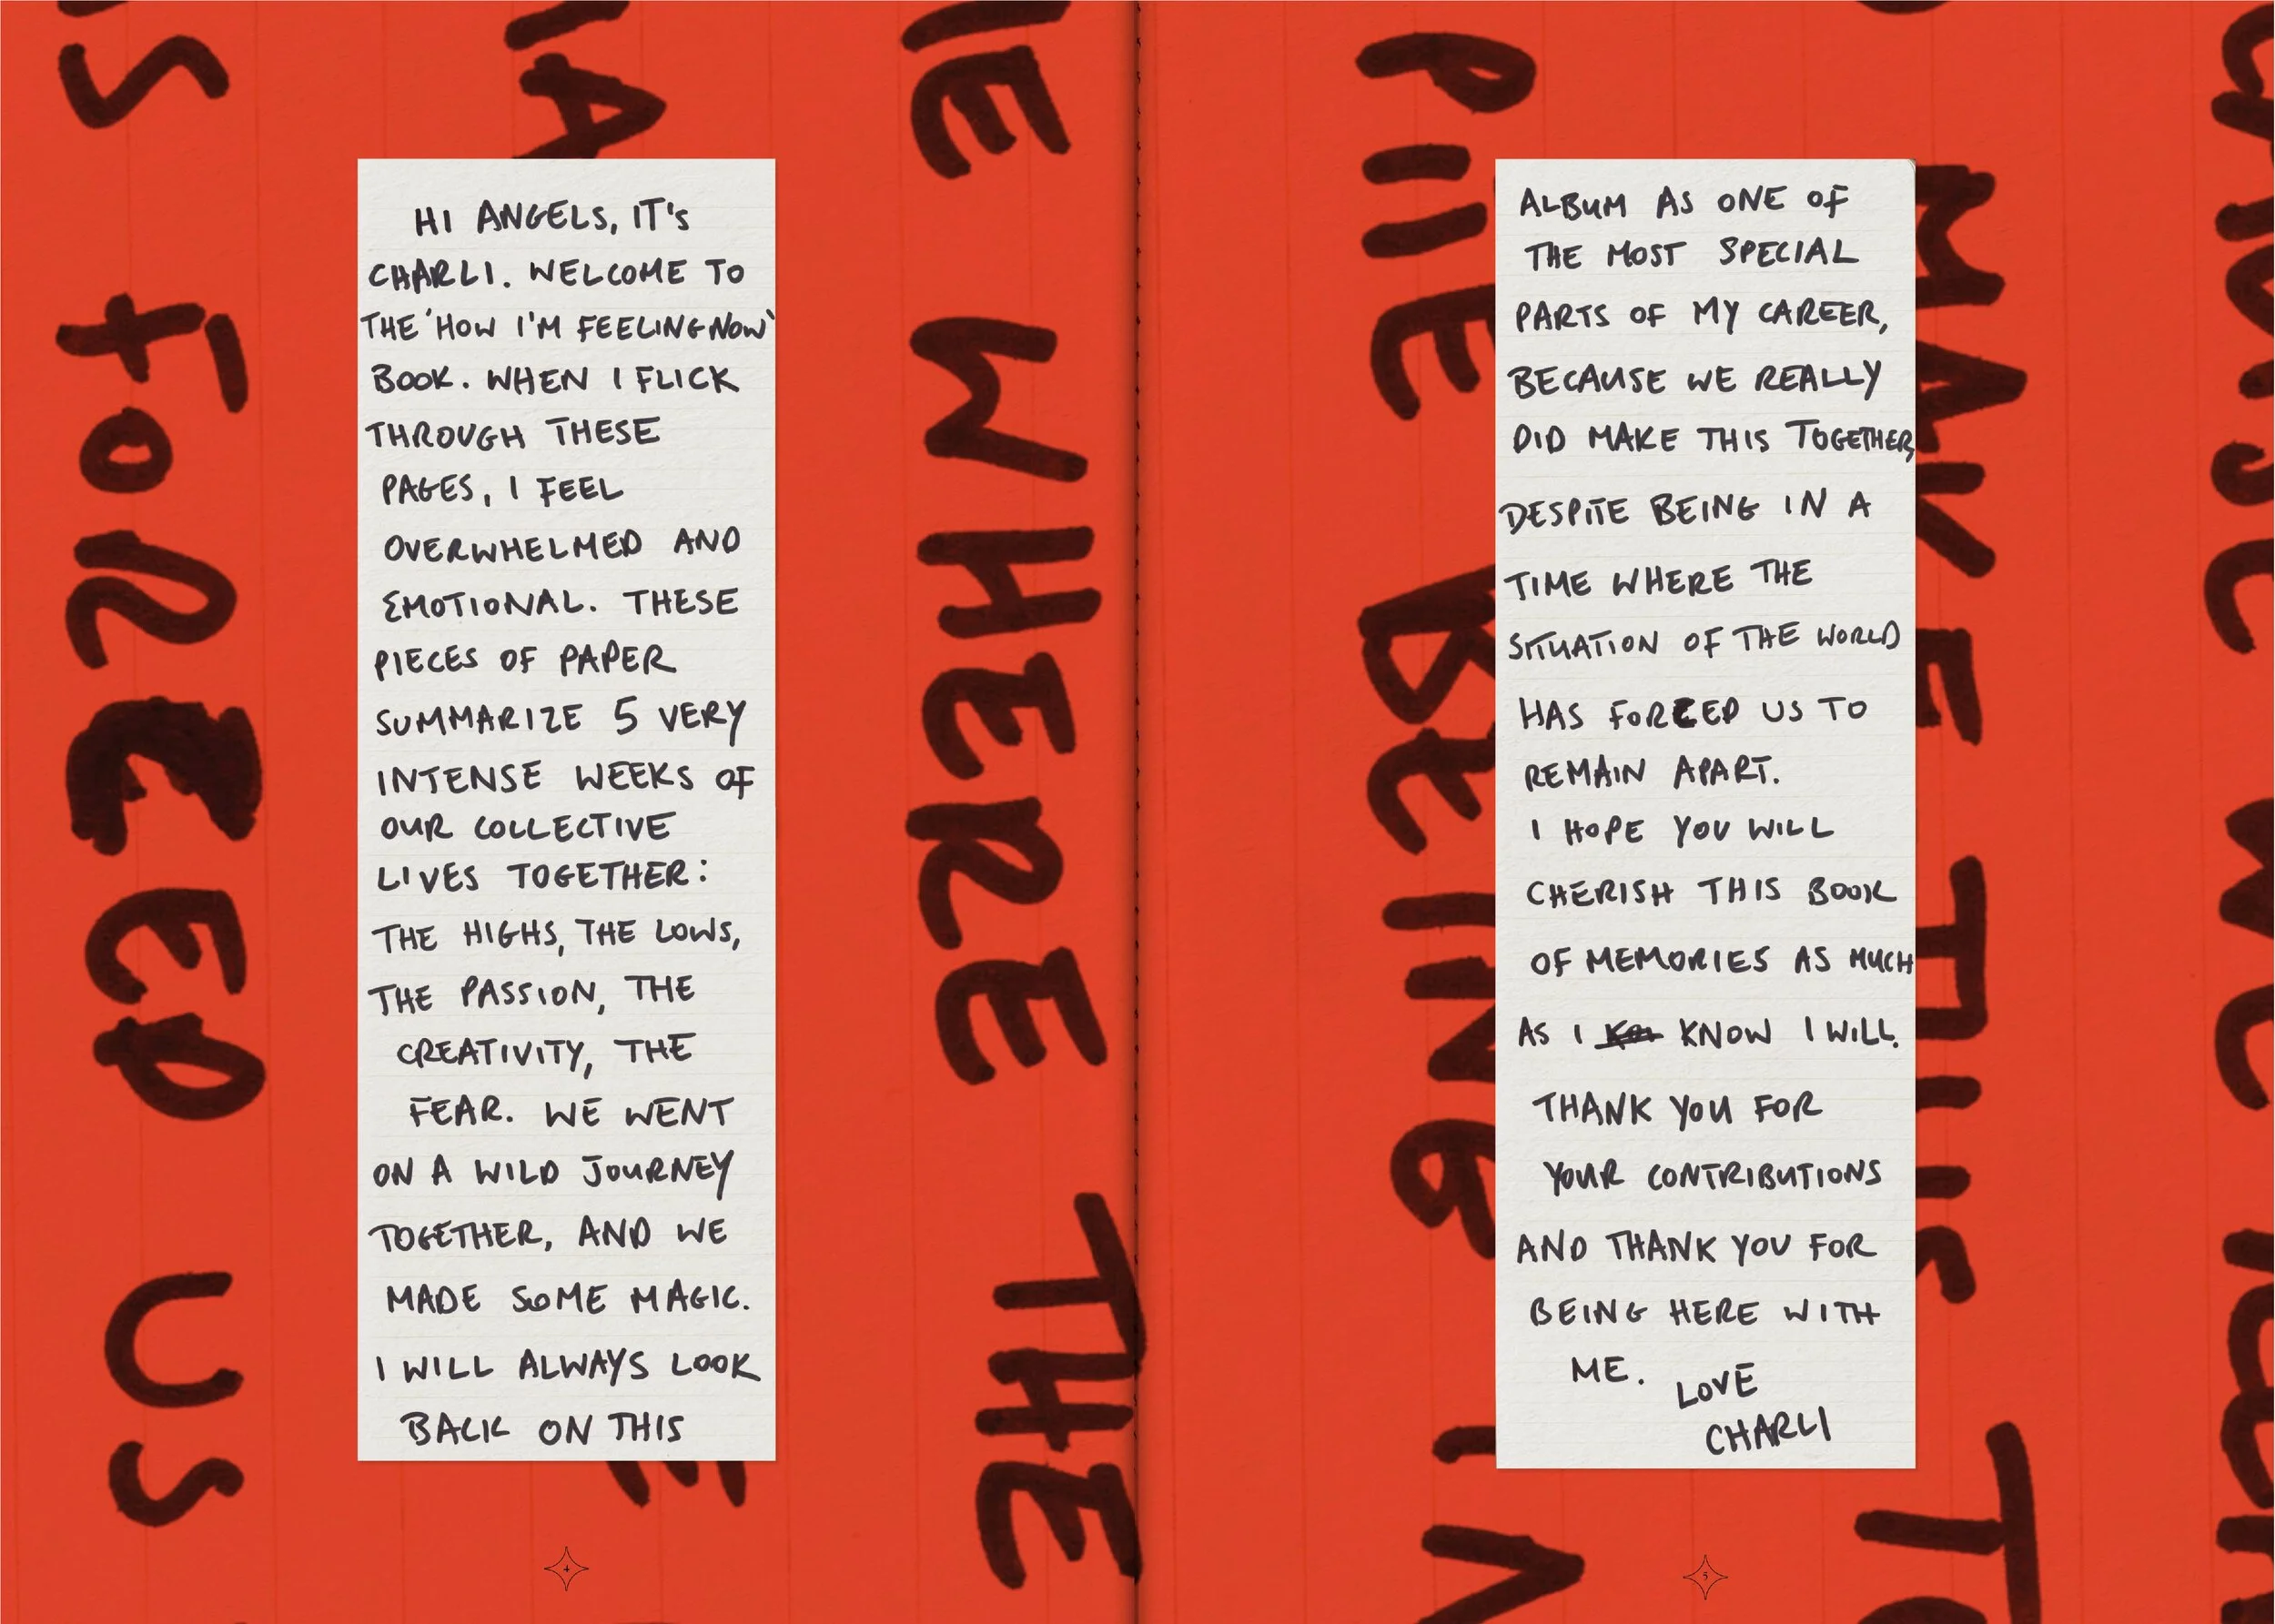 HI ANGELS, IT'S
CHARLI. WELCOME TO
THE 'HOW I'M FEELING NOW'
BOOK. WHEN I FLICK
THROUGH THESE
PAGES, I FEEL
OVERWHELMED AND
EMOTIONAL. THESE
PIECES OF PAPER
SUMMARIZE 5 VERY
INTENSE WEEKS OF
OUR COLLECTIVE
LIVES TOGETHER:
THE HIGHS, THE LOWS,
THE PASSION, THE
CREATIVITY, THE
FEAR. WE WENT
ON A WILD JOURNEY
TOGETHER, AND WE
MADE SOME MAGIC.
I WILL ALWAYS LOOK
BACK ON THIS
4
ALBUM AS ONE OF
THE MOST SPECIAL
PARTS OF MY CAREER,
BECAUSE WE REALLY
DID MAKE THIS TOGETHER,
DESPITE BEING IN A
TIME WHERE THE
SITUATION OF THE WORLD
HAS FORCED US TO
REMAIN APART.
I HOPE YOU WILL
CHERISH THIS BOOK
OF MEMORIES AS MUCH
AS I KNOW I WILL.
THANK YOU FOR
YOUR CONTRIBUTIONS
AND THANK YOU FOR
BEING HERE WITH
ME.
LOVE
CHARLI
5
FORCED US
WHERE THE
BEING
MAKE THIS